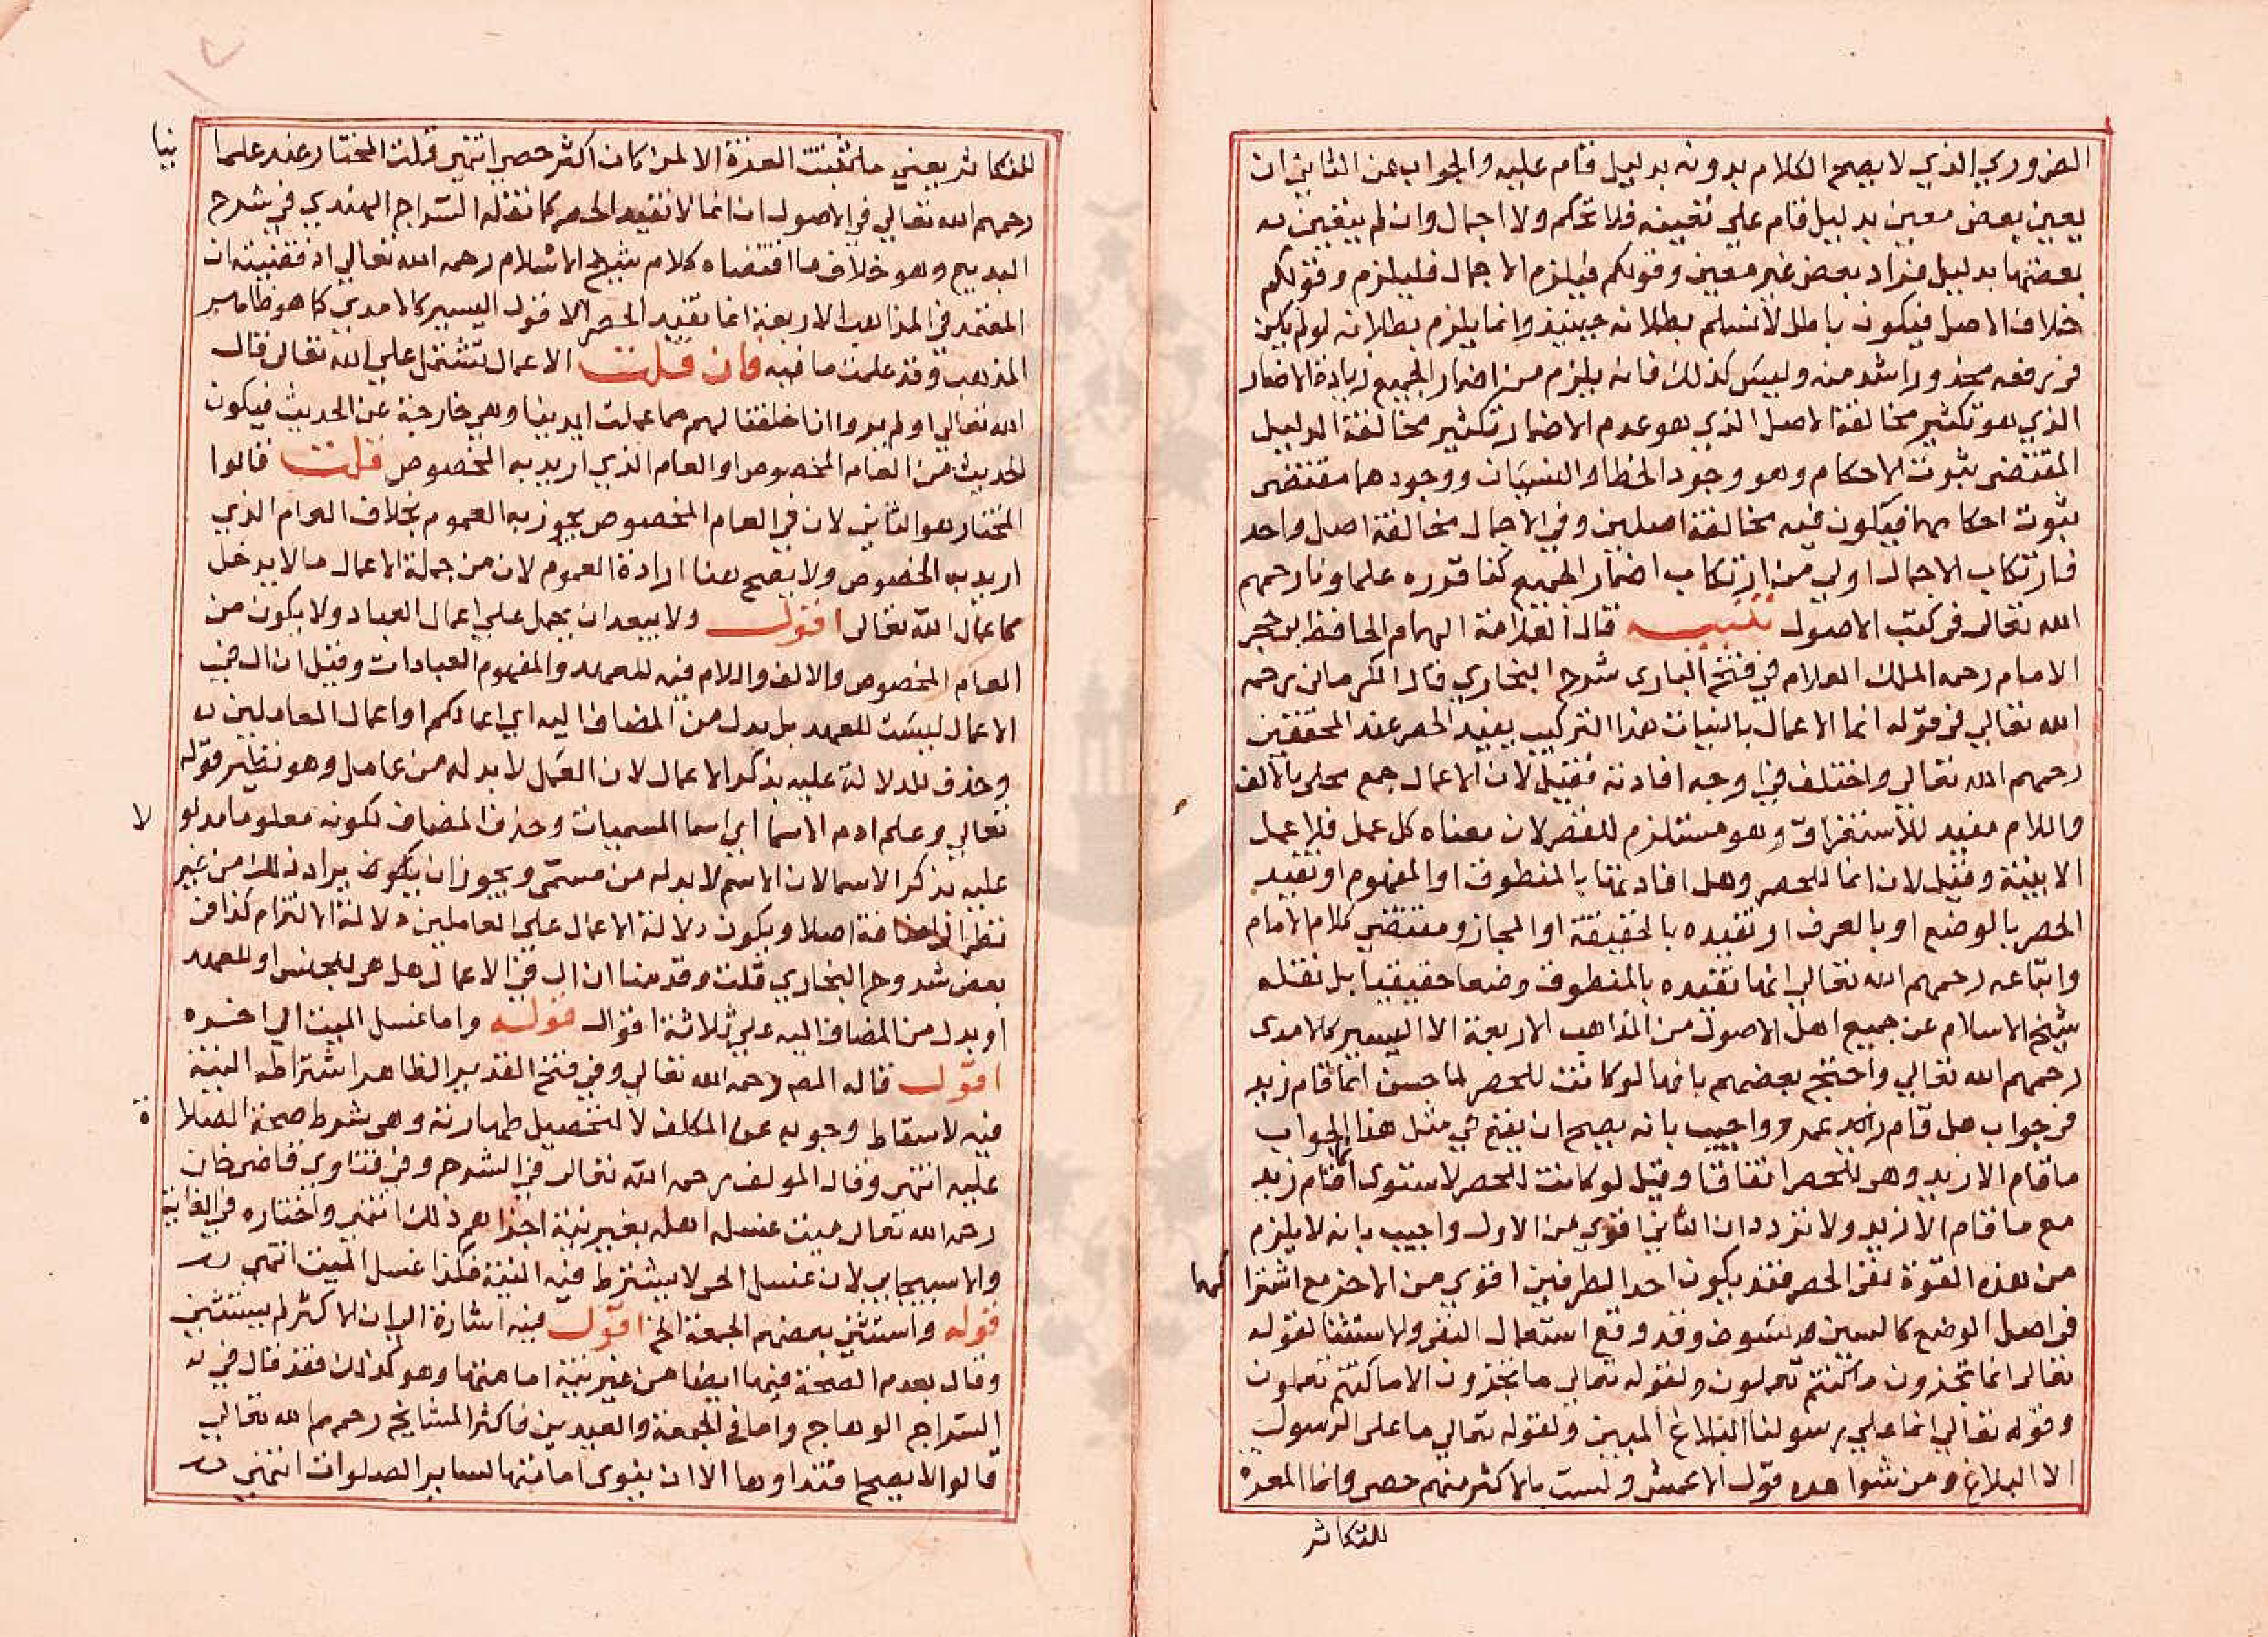 الضروري الذي لا يصح الكلام بدونه بدليل قام عليه والجواب عن الثاني ان
يعين بعض معين بدليل قام علي تعيينه فلا تحكم ولا اجمال وان لم يتعين
بعضها بدليل فيراد بعض غير معين وقولكم فيلزم الاجمال فليلزم وقولكم
خلاف الاصل فيكون باطل لا نسلم بطلانه حينئذ وانما يلزم بطلانه لو لم يكن
في رفعه محذور اشد منه وليس كذلك فانه يلزم من اضمار الجميع زيادة الاضمار
الذي هو تكثير مخالفة الاصل الذي هو عدم الاضمار وتكثير مخالفة الدليل
المقتضي ثبوت الاحكام وهو وجود الخطا والنسيان ووجودهما مقتضى
ثبوت احكامهما فيكون فيه مخالفة اصلين وفي الاجمال مخالفة اصل واحد
فارتكاب الاجمال اولي من ارتكاب اضمار الجميع كذا قرره علماونا رحمهم
الله تعالى في كتب الاصول تنبيه قال العلامة الهمام الحافظ ابن حجر
الامام رحمه الملك العلام في فتح الباري شرح البخاري قال الكرماني رحمه
الله تعالي في قوله انما الاعمال بالنيات هذا التركيب يفيد الحصر عند المحققين
رحمهم الله تعالي واختلف في وجه افادته فقيل لان الاعمال جمع محلى بالالف
واللام مفيد للاستغراق وهو مستلزم للقصر لان معناه كل عمل فلا عمل
الا بنية وقيل لان انما للحصر وهل افادتها بالمنطوق او المفهوم او تفيد
الحصر بالوضع او بالعرف او تفيده بالحقيقة او المجاز ومقتضي كلام الامام
واتباعه رحمهم الله تعالي انها تفيده بالمنطوق وضعا حقيقيا بل نقله
شيخ الاسلام عن جميع اهل الاصول من المذاهب الاربعة الا اليسير كالامدى
رحمهم الله تعالي واحتج بعضهم بانها لو كانت للحصر لما حسن انما قام زيد
في جواب هل قام عمرو واجيب بانه يصح ان يقع في مثل هذا الجواب
ما قام الا زيد وهي للحصر اتفاقا وقيل لو كانت للحصر لاستوى انما قام زيد
مع ما قام الا زيد ولا تردد ان الثاني اقوي من الاول واجيب بانه لا يلزم
من هذه القوة نفي الحصر فقد يكون احد الطرفين اقوي من الاخر مع اشترا كهما
في اصل الوضع كالسين وسوف وقد وقع استعمال النفي والاستثنا لقوله
تعالى انما تجزون ما كنتم تعملون ولقوله تعالي ما تجزون الا ما كنتم تعملون
وقوله تعالي انما علي رسولنا البلاغ المبين ولقوله تعالي ما على الرسول
الا البلاغ ومن شواهده قول الاعمش ولست بالاكثر منهم حصى وانما العزة
للتكاثر
للتكاثر يعني ما تثبت العزة الا لمن كان اكثر حصى انتهى قلت المختار عند علما ينا
رحمهم الله تعالي في الاصول ان انما لا تفيد الحصر كما نقله السراج الهندي في شرح
البديع وهو خلاف ما اقتضاه كلام شيخ الاسلام رحمه الله تعالي اذ قضيته ان
المعتمد في المذاهب الاربعة انما تفيد الحصر الا قول اليسير كالامدي كما هو ظاهر
المذهب وقد علمت ما فيه فان قلت الاعمال تشتمل علي الله تعالى قال
الله تعالي اولم يروا انا خلقنا لهم مما عملت ايدينا وهي خارجة عن الحديث فيكون
الحديث من العام المخصوص او العام الذي اريد به المخصوص قلت قالوا
المختار هو الثاني لان في العام المخصوص يجوز به العموم بخلاف العام الذي
اريد به الخصوص ولا يصح هنا ارادة العموم لان من جملة الاعمال ما لا يدخل
كاعمال الله تعالى اقول ولا يبعد ان يحمل علي اعمال العباد ولا يكون من
العام المخصوص والالف واللام فيه للعهد والمفهوم العبادات وقيل ان ال في
الاعمال ليست للعهد بل بدل من المضاف اليه اي اعمالكم او اعمال العاملين
وحذف للدلالة عليه بذكر الاعمال لان العمل لا بد له من عامل وهو نظير قوله
تعالي وعلم ادم الاسما اي اسما المسميات وحذف المضاف لكونه معلوما مدلو لا
عليه بذكر الاسما لان الاسم لا بد له من مسمى ويجوز ان يكون يراد ذلك من غير
نظر الى اضافة اصلا ويكون دلالة الاعمال علي العاملين دلالة الالتزام كذا في
بعض شروح البخاري قلت وقدمنا ان ال في الاعمال هل هي للجنس او للعهد
او بدل من المضاف اليه علي ثلاثة اقوال قوله واما غسل الميت الي اخره
اقول قاله المص رحمه الله تعالي وفي فتح القدير الظاهر اشتراط النية
فيه لاسقاط وجوبه عن المكلف لا لتحصيل طهارته وهي شرط صحة الصلا ة
عليه انتهى وقال المولف رحمه الله تعالى في الشرح وفي فتاوي قاضي خان
رحمه الله تعالى ميت غسله اهله بغير نية اجزاهم ذلك انتهى واختاره في الغاية
والاسبيجابي لان غسل الحي لا يشترط فيه النية فكذا غسل الميت انتهى
قوله واستثنى بعضهم الجمعة الخ اقول فيه اشارة الي ان الاكثر لم يستثني
وقال بعدم الصحة فيها ايضا من غير نية امامتها وهو كذلك فقد قال في
السراج الوهاج واما في الجمعة والعيدين فاكثر المشايخ رحمهم الله تعالي
قالوا لا يصح اقتداوها الا ان ينوى امامتها لساير الصلوات انتهى